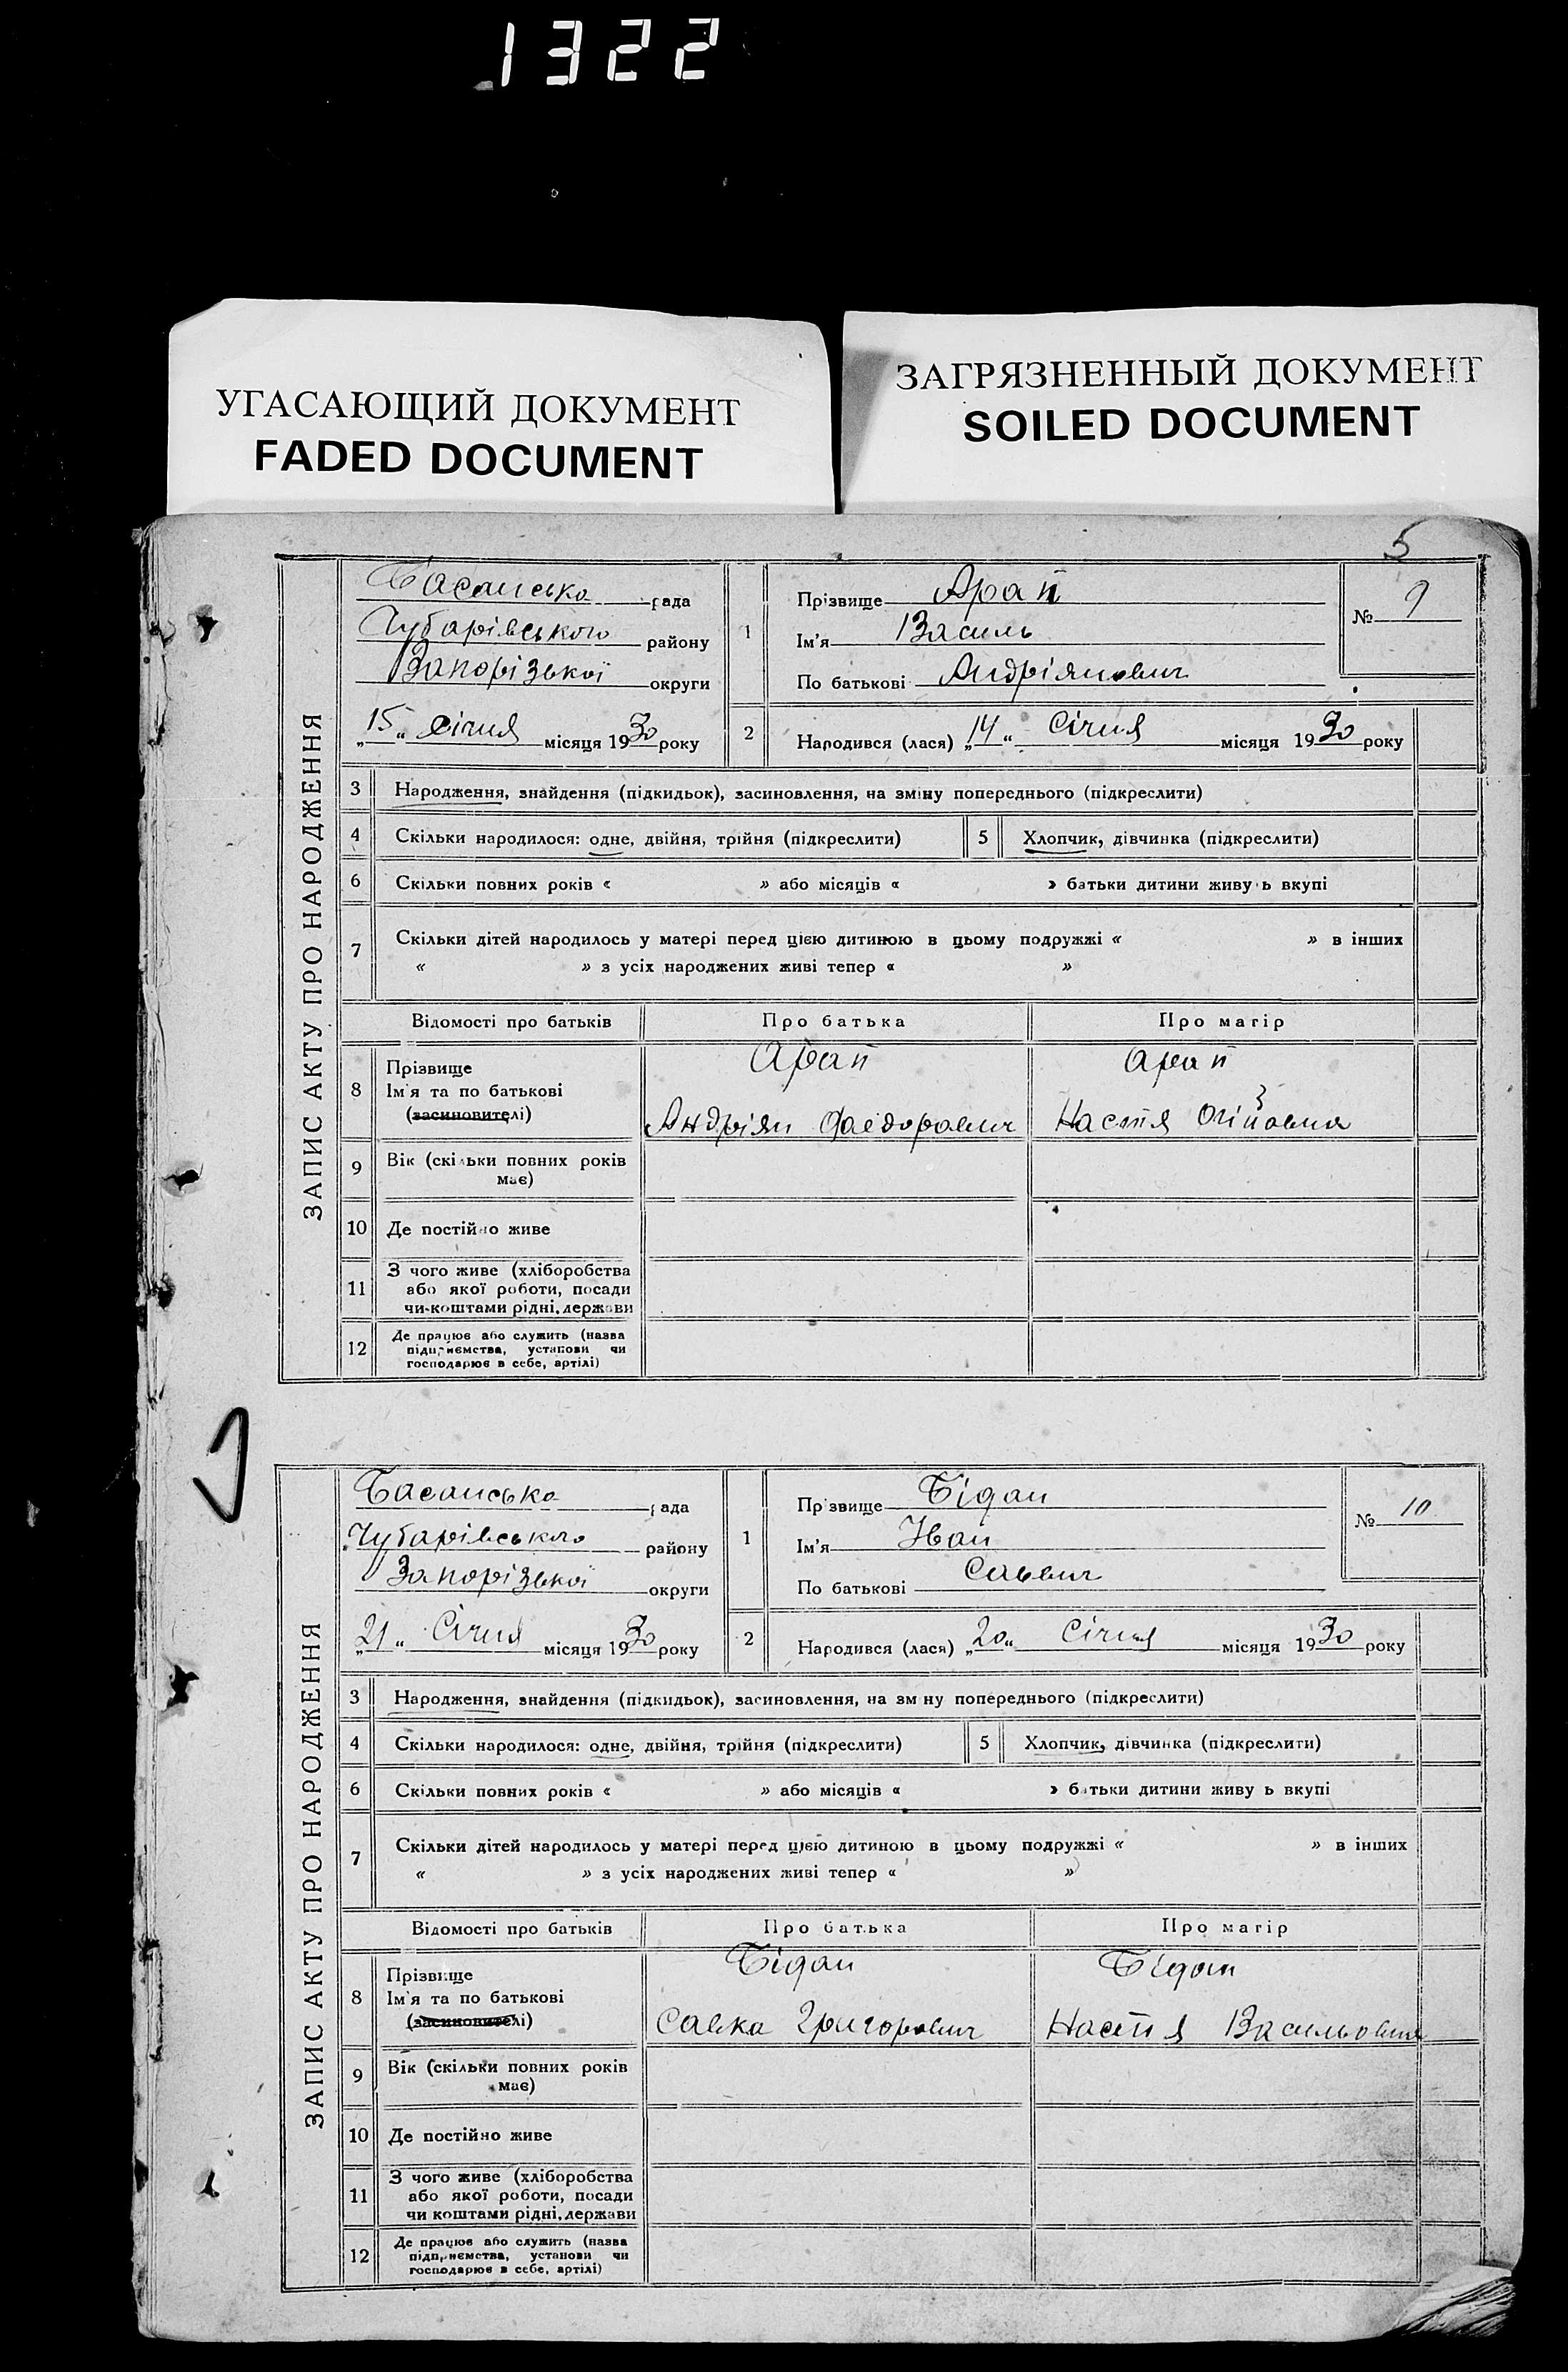 1322
УГАСАЮЩИЙ ДОКУМЕНТ
FADED DOCUMENT
ЗАГРЯЗНЕННЫЙ ДОКУМЕНТ
SOILED DOCUMENT
5
ЗАПИС АКТУ ПРО НАРОДЖЕННЯ
Басанська рада
Чубарівського району
Запорізької округи
„15“ Січня місяця 1930 року
1 Прізвище Арап
Ім'я Василь
По батькові Андріянович
№ 9
2 Народився (лася) „14“ Січня місяця 1930 року
3 Народження, знайдення (підкидьок), засиновлення, на зміну попереднього (підкреслити)
4 Скільки народилося: одне, двійня, трійня (підкреслити) 5 Хлопчик, дівчинка (підкреслити)
6 Скільки повних років « » або місяців « » батьки дитини живуть вкупі
7 Скільки дітей народилось у матері перед цією дитиною в цьому подружжі « » в інших
« » з усіх народжених живі тепер « »
Відомості про батьків Про батька Про матір
8 Прізвище Арап Арап
Ім'я та по батькові
(засиновителі) Андріян Настя
9 Вік (скільки повних років
має)
10 Де постійно живе
11 З чого живе (хліборобства
або якої роботи, посади
чи коштами рідні, держави
12 Де працює або служить (назва
підприємства, установи чи
господарює в себе, артілі)
ЗАПИС АКТУ ПРО НАРОДЖЕННЯ
Басанська рада
Чубарівського району
Запорізької округи
„21“ Січня місяця 1930 року
1 Прізвище Бідан
Ім'я Іван
По батькові Савович
№ 10
2 Народився (лася) „20“ Січня місяця 1930 року
3 Народження, знайдення (підкидьок), засиновлення, на зміну попереднього (підкреслити)
4 Скільки народилося: одне, двійня, трійня (підкреслити) 5 Хлопчик, дівчинка (підкреслити)
6 Скільки повних років « » або місяців « » батьки дитини живуть вкупі
7 Скільки дітей народилось у матері перед цією дитиною в цьому подружжі « » в інших
« » з усіх народжених живі тепер « »
Відомості про батьків Про батька Про матір
8 Прізвище Бідан Бідан
Ім'я та по батькові
(засиновителі) Савка Григорович Настя Васильовна
9 Вік (скільки повних років
має)
10 Де постійно живе
11 З чого живе (хліборобства
або якої роботи, посади
чи коштами рідні, держави
12 Де працює або служить (назва
підприємства, установи чи
господарює в себе, артілі)